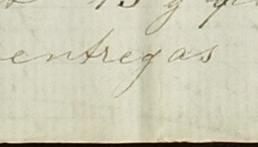 15 y
entregas